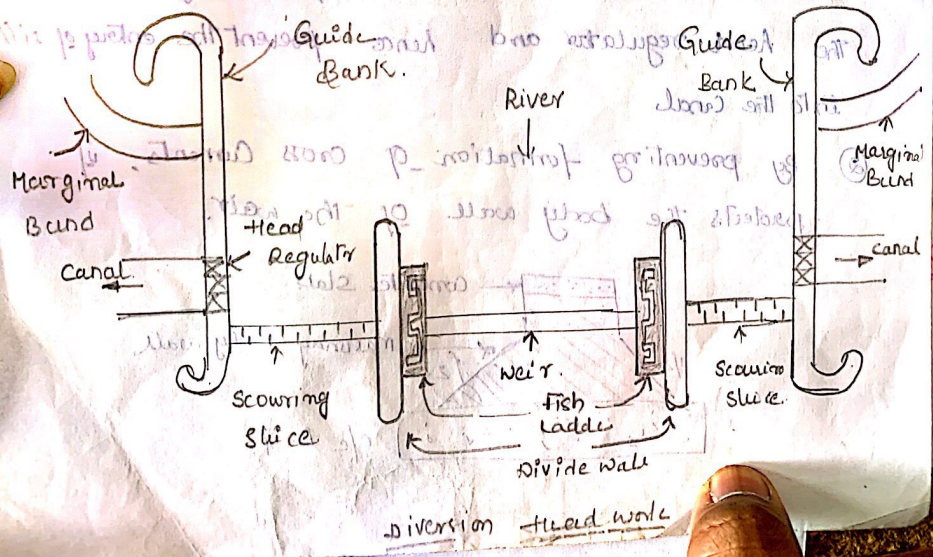 Guide
Bank.
Guide
Bank
River
Marginal
Bund
Marginal
Bund
Head
Regulator
Canal
Canal
Weir.
Scouring
Sluice
Fish
Ladder
Scouring
Sluice.
Divide Wall
Diversion Head Work